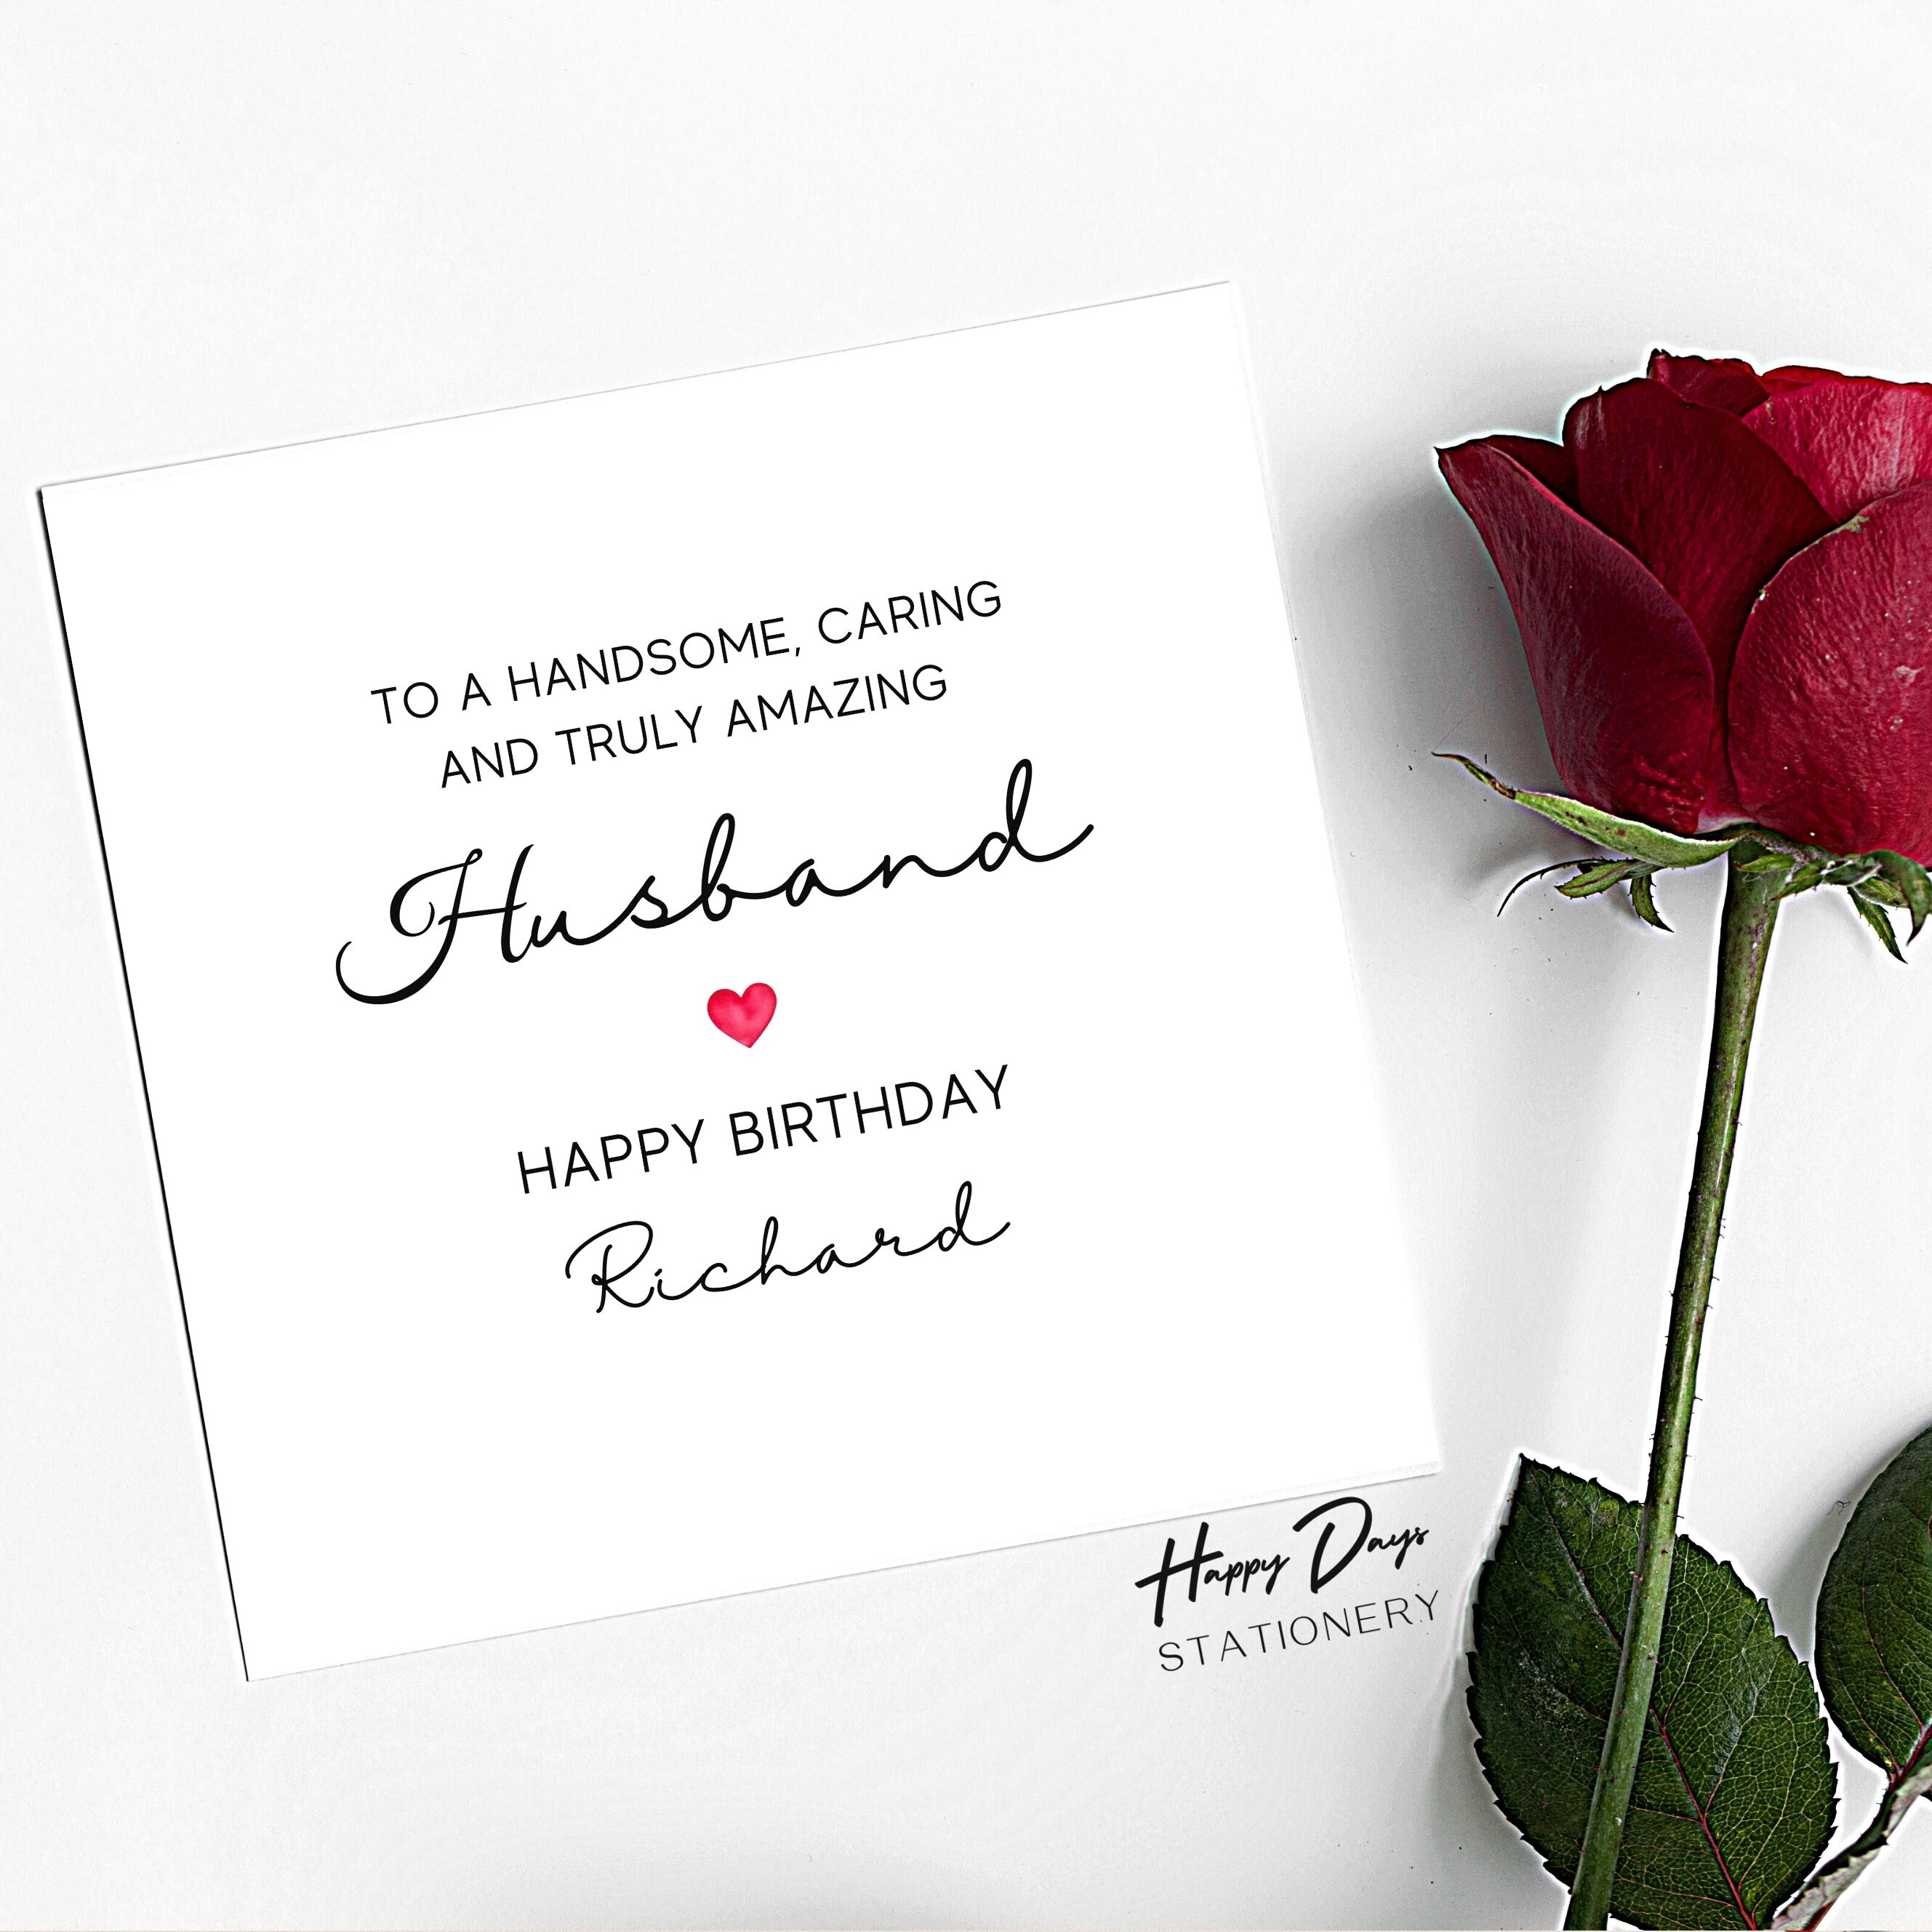 TO A HANDSOME, CARING
AND TRULY AMAZING
Husband
HAPPY BIRTHDAY
Richard
Happy Days
STATIONERY